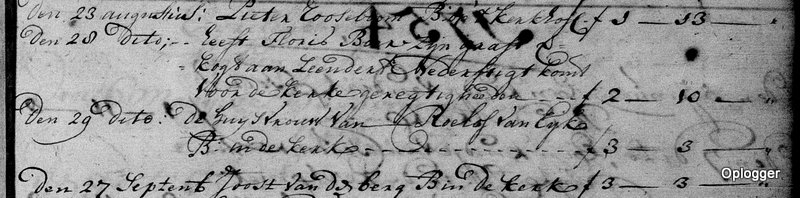 den 23 augustus: Pieter Rooseboom B: in 't kerkhof f 1 — 13 —
den 28 dito; -- heeft Floris Boer zijn graft ver
= kogt aan Leendert Nederstigt komt
voor de kerke geregtigheden f 2 — 10 — "
den 29 dito: de huysvrouw van Roelof van Eyk
B: in de kerk - - - - - - - f 3 — 3 — "
den 27 Septemb Joost vander berg B in de kerk f 3 — 3 — "
Oplogger